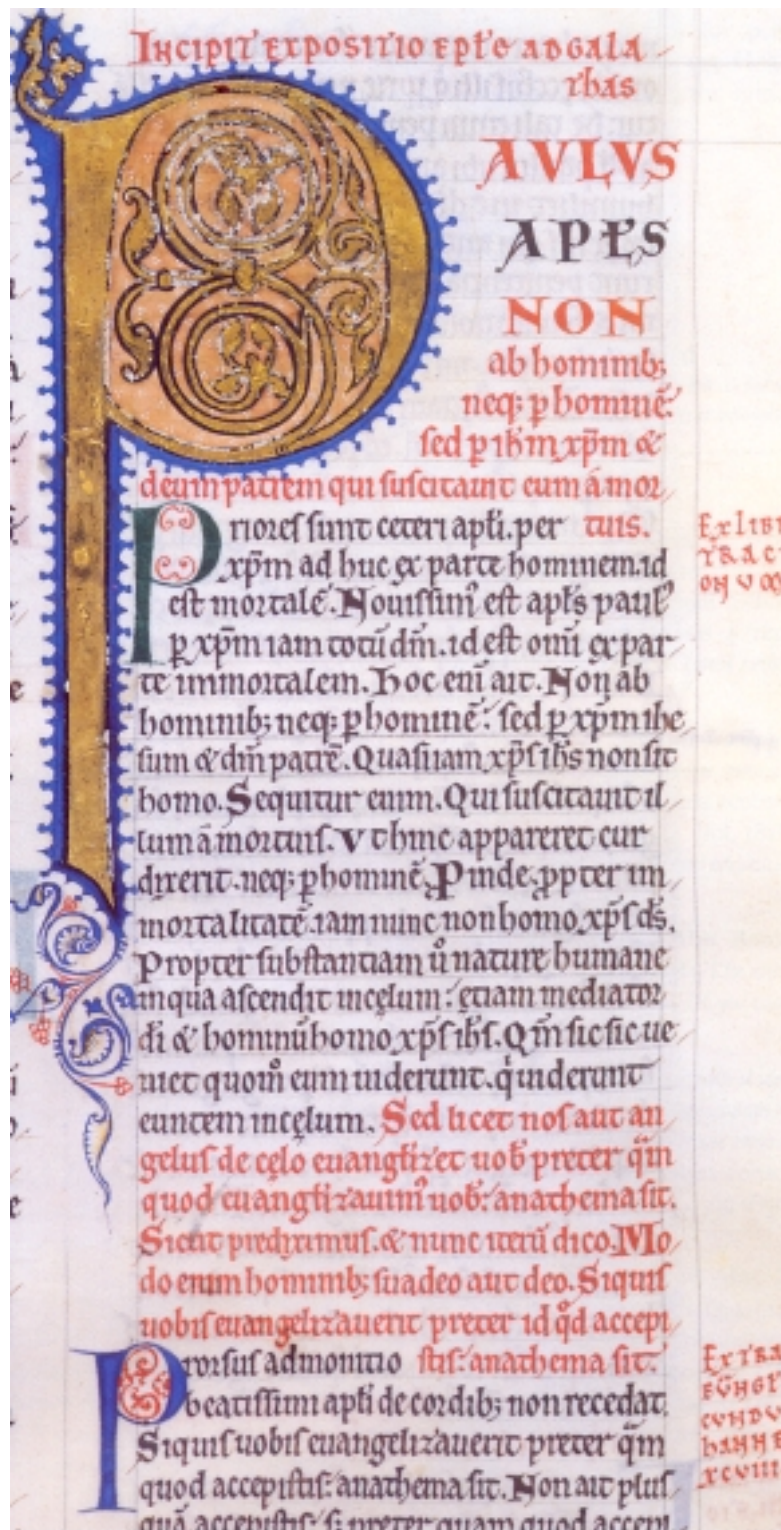 INCIPIT EXPOSITIO EPL'E AD GALA
thas
PAULUS
APL'S
NON
ab hominib;
neq; p homine͞.
sed p ih͞m xp͞m &
deum patrem qui suscitauit eum á mor
tuis.
Priores sunt ceteri apl'i. per
xp͞m ad huc ex parte hominem. id
est mortale͞. Nouissim' est apl's paul'
p xp͞m iam totu͞ dm͞. id est omi͞ ex par
te immortalem. Hoc eni͞ ait. Non ab
hominib; neq; p homine͞. sed p xp͞m ihe
sum & dm͞ patre͞. Quasi iam xp͞s ih͞s non sit
homo. Sequitur enim. Qui suscitauit il
lum á mortuis. Vt hinc appareret cur
dixerit. neq; p homine͞. Proinde ppter im
mortalitate͞. iam nunc non homo xp͞s d͞s.
Propter substantiam u͞ nature humane
in qua ascendit in cęlum. etiam mediator
di͞ & hominu͞ homo xp͞s ih͞s. Qm͞ sic sic ue
niet quom͞ eum uiderunt. q uiderunt
euntem in cęlum. Sed licet nos aut an
gelus de cęlo euangl'izet uob͞ preter qm͞
quod euangl'izauim' uob͞. anathema sit.
Sicut prediximus. & nunc iteru͞ dico. Mo
do enim hominib; suadeo aut deo. Siquis
uobis euangelizauerit preter id qd͞ accepi
stis. anathema sit.
Prorsus admonitio
beatissimi apl'i de cordib; non recedat.
Siquis uobis euangelizauerit preter qm͞
quod accepistis. anathema sit. Non ait plus
qua͞ accepistis. s; preter quam quod accepi
EX LIB
TRAC
XCVIII